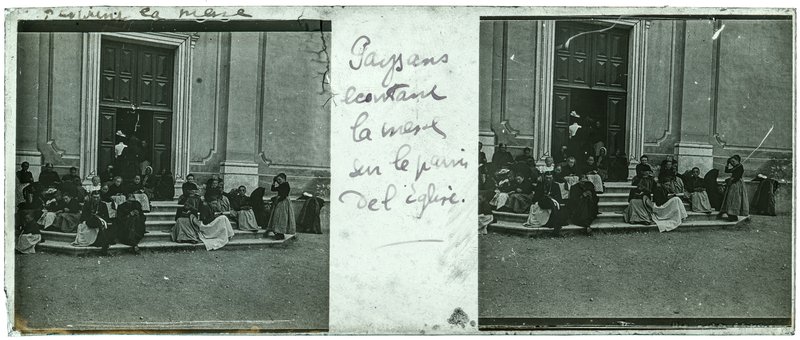 la messe
Paysans
ecoutant
la messe
sur le parvis
De l'église.